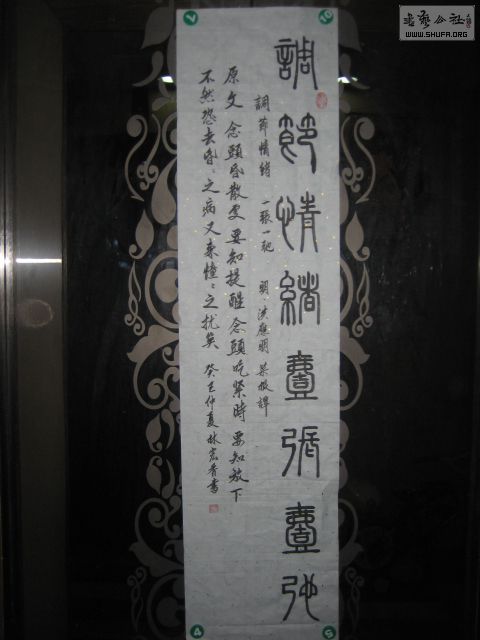 調節情緒壹張壹弛
調節情緒 一張一弛 明·洪應明 菜根譚
原文 念頭昏散處要知提醒念頭吃緊時要知放下
不然恐去昏〻之病又來憧〻之擾矣 癸巳仲夏林宏香書
書藝公社
WWW.SHUFA.ORG